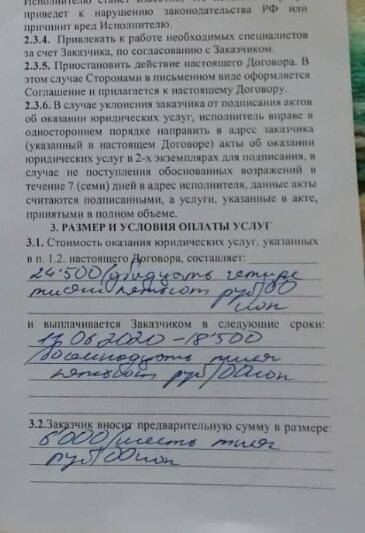 Исполнителю станет известно, что
приведет к нарушению законодательства РФ или
причинит вред Исполнителю.
2.3.4. Привлекать к работе необходимых специалистов
за счет Заказчика, по согласованию с Заказчиком.
2.3.5. Приостановить действие настоящего Договора. В
этом случае Сторонами в письменном виде оформляется
Соглашение и прилагается к настоящему Договору.
2.3.6. В случае уклонения заказчика от подписания актов
об оказании юридических услуг, исполнитель вправе в
одностороннем порядке направить в адрес заказчика
(указанный в настоящем Договоре) акты об оказании
юридических услуг в 2-х экземплярах для подписания, в
случае не поступления обоснованных возражений в
течение 7 (семи) дней в адрес исполнителя, данные акты
считаются подписанными, а услуги, указанные в акте,
принятыми в полном объеме.
3. РАЗМЕР И УСЛОВИЯ ОПЛАТЫ УСЛУГ
3.1. Стоимость оказания юридических услуг, указанных
в п. 1.2. настоящего Договора, составляет:
24'500/двадцать четыре
тысячи пятьсот руб/00
коп
и выплачивается Заказчиком в следующие сроки:
17.06.2020 – 18'500
/восемнадцать тысяч
пятьсот руб/00коп
3.2.Заказчик вносит предварительную сумму в размере:
6'000/шесть тысяч
руб/00коп